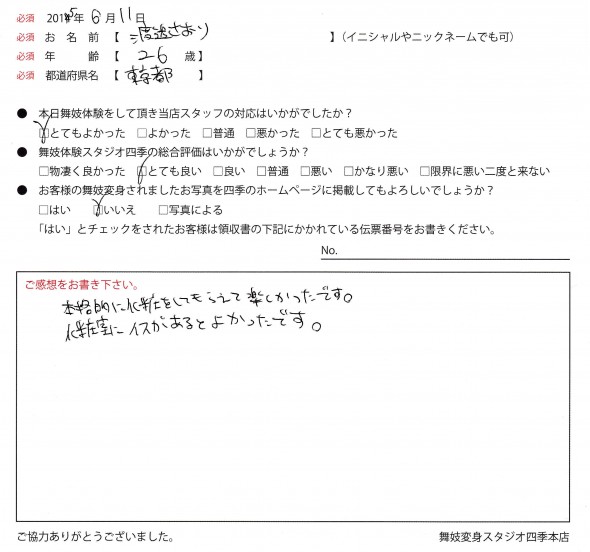 必須 2015年 6月11日
必須 お 名 前 【 渡邉さおり 】（イニシャルやニックネームでも可）
必須 年 齢 【 26 歳】
必須 都道府県名 【 東京都 】
● 本日舞妓体験をして頂き当店スタッフの対応はいかがでしたか？
□とてもよかった □よかった □普通 □悪かった □とても悪かった
● 舞妓体験スタジオ四季の総合評価はいかがでしょうか？
□物凄く良かった □とても良い □良い □普通 □悪い □かなり悪い □限界に悪い二度と来ない
● お客様の舞妓変身されましたお写真を四季のホームページに掲載してもよろしいでしょうか？
□はい □いいえ □写真による
「はい」とチェックをされたお客様は領収書の下記にかかれている伝票番号をお書きください。
No.
ご感想をお書き下さい。
本格的に化粧をしてもらえて楽しかったです。
化粧室にイスがあるとよかったです。
ご協力ありがとうございました。 舞妓変身スタジオ四季本店